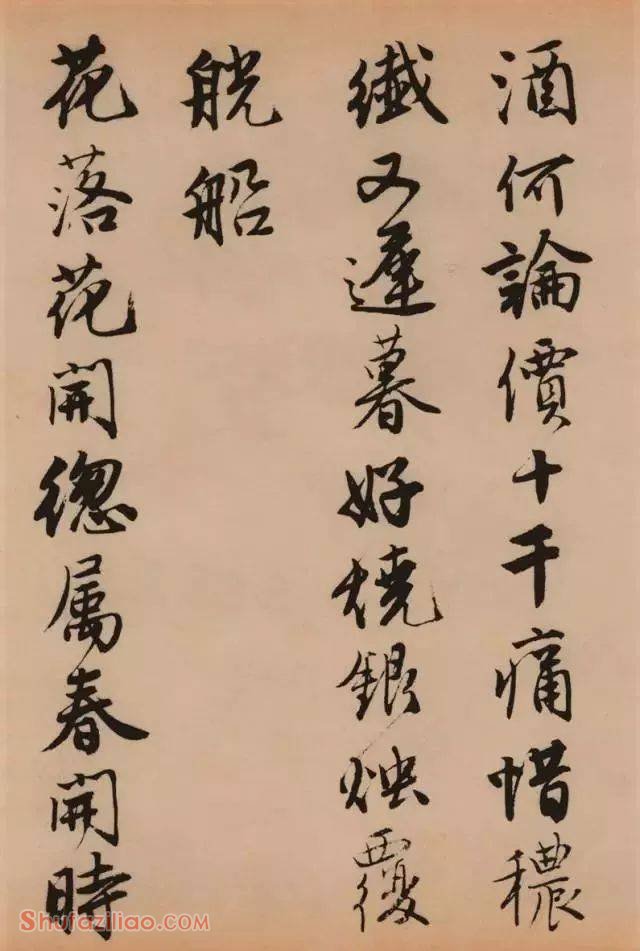 酒何論價十千痛惜穠
纖又遲暮好燒銀燭覆
觥船
花落花開總屬春開時
Shufaziliao.com